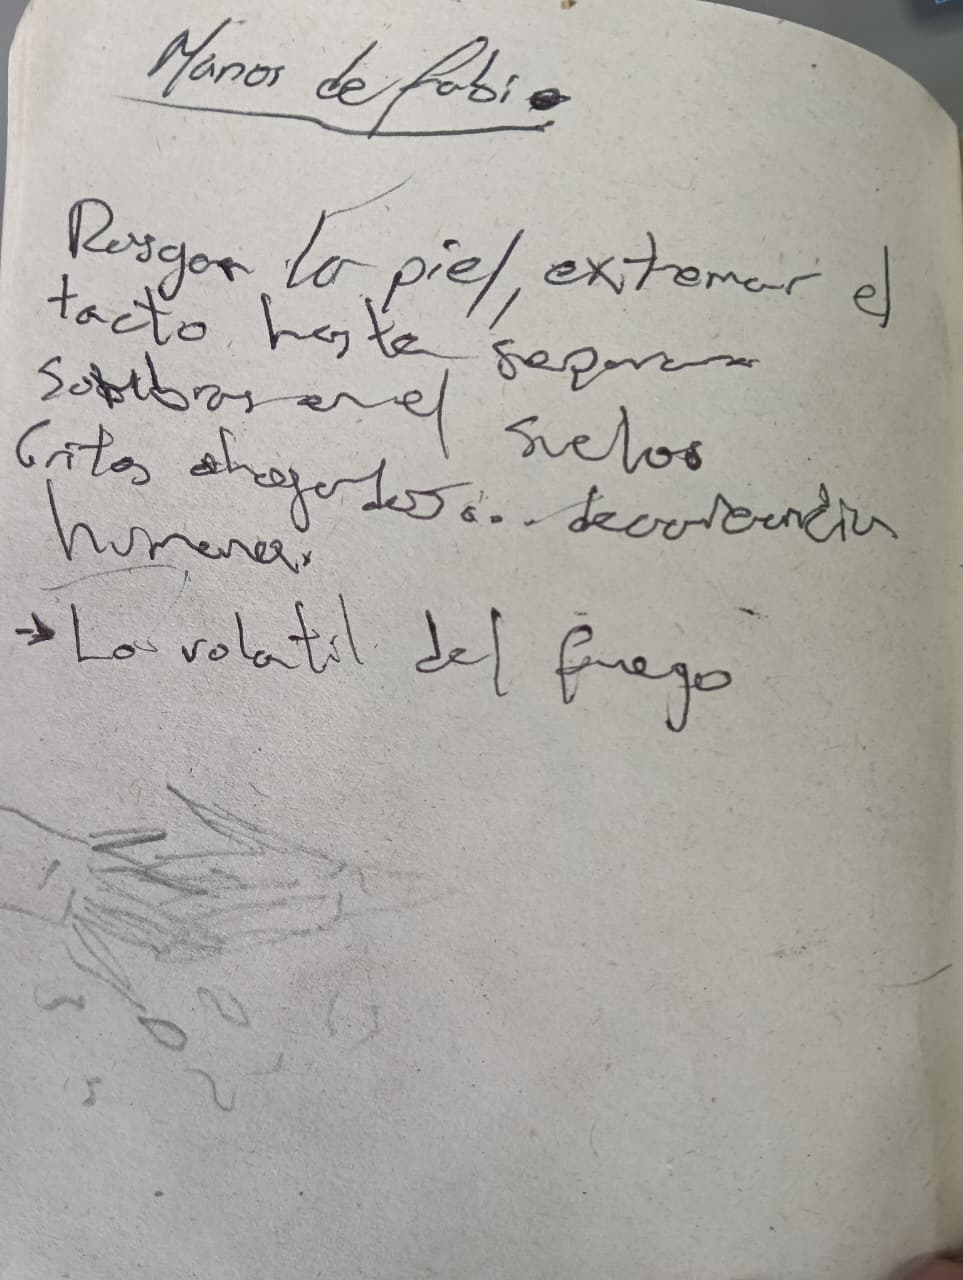 Manos de fabio
Rasgar la piel, extremar el
tacto hasta separar
sombras en el suelos
Gritos ahogados...
humana.
→ Lo volatil del fuego